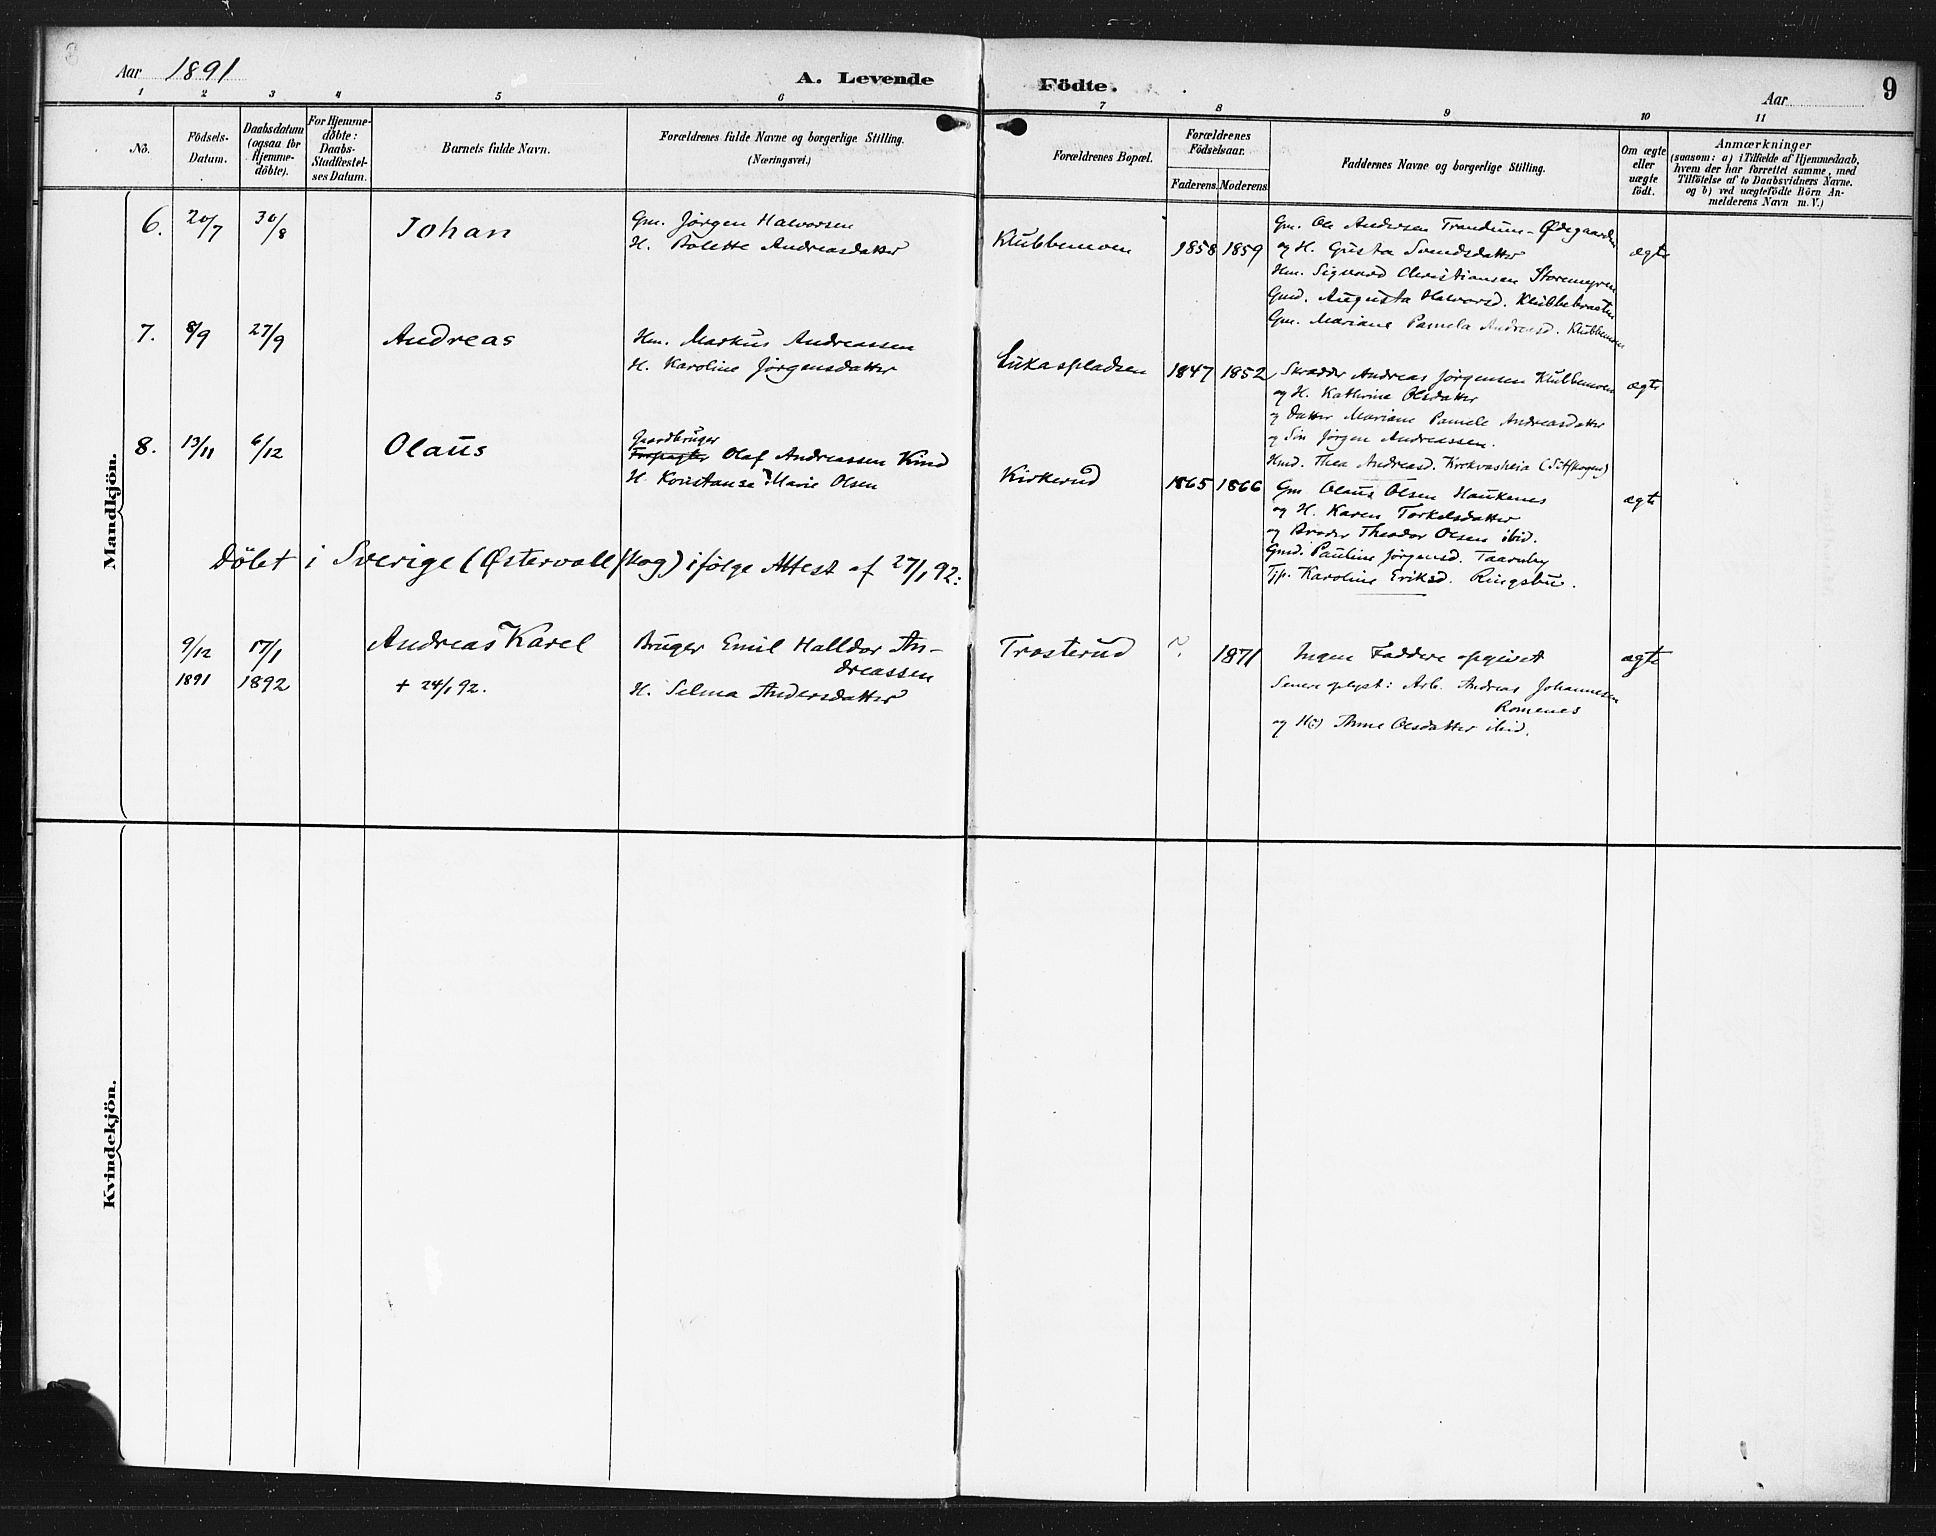 Aar 1891
A. Levende Födte.
Aar
9
1 2 3 4 5 6 7 8 9 10 11
No.
Födsels-Datum.
Daabsdatum (ogsaa for Hjemme-döbte).
For Hjemme-döbte: Daabs-Stadfæstel-ses Datum.
Barnets fulde Navn.
Forældrenes fulde Navne og borgerlige Stilling. (Næringsvei.)
Forældrenes Bopæl.
Forældrenes Födselsaar.
Faderens. Moderens.
Faddernes Navne og borgerlige Stilling.
Om ægte eller uægte födt.
Anmærkninger
(saasom: a) i Tilfælde af Hjemmedaab, hvem der har forrettet samme, med Tilföielse af to Daabsvidners Navne. og b) ved uægtefödte Börn Anmelderens Navn m. V.)
Mandkjön.
6. 20/7 30/8 Johan
Gm. Jørgen Halvorsen
H. Bolette Andreasdatter
Klubbemoen 1858 1859
Gm. Ole Andersen Trandum-Ødegaarden
og H. Gusta Svendsdatter
Hm. Sigvard Christiansen Storemyren
Gmd. Augusta Halvorsd. Klubbebraaten
Gm. Mariane Pamela Andreasd. Klubbemoen
ægte
7. 8/9 27/9 Andreas
Hm. Markus Andreassen
H. Karoline Jørgensdatter
Lukaspladsen 1847 1852
Skrædder Andreas Jørgensen Klubbemoen
og H. Kathrine Olsdatter
og Datter Mariane Pamele Andreasdatter
og Søn Jørgen Andreassen.
Hmd. Thea Andreasd. Kirkvasheia (Setskogen)
ægte
8. 13/11 6/12 Olaus
Gaardbruger
Forpagter Olaf Andreassen Kind
H. Konstanse Marie Olsen
Kirkerud 1865 1866
Gm Olaus Olsen Haukenes
og H. Karen Torkelsdatter
og Broder Theodor Olsen ibid.
Gmd. Pauline Jørgensd. Taarnby
Tjp. Karoline Eriksd. Ringsbu.
ægte
Døbt i Sverige (Østervallskog) ifølge Attest af 27/1 92:
9/12 1891 17/1 1892
Andreas Karel
+ 24/1 92.
Bruger Emil Halldor An-
dreassen
H. Selma Andersdatter
Trosterud ? 1871
Ingen Faddere opgivet
Senere oplyst: Arb. Andreas Johannesen
Romenes
og H(?) Anne Olsdatter ibid.
ægte
Kvindekjön.